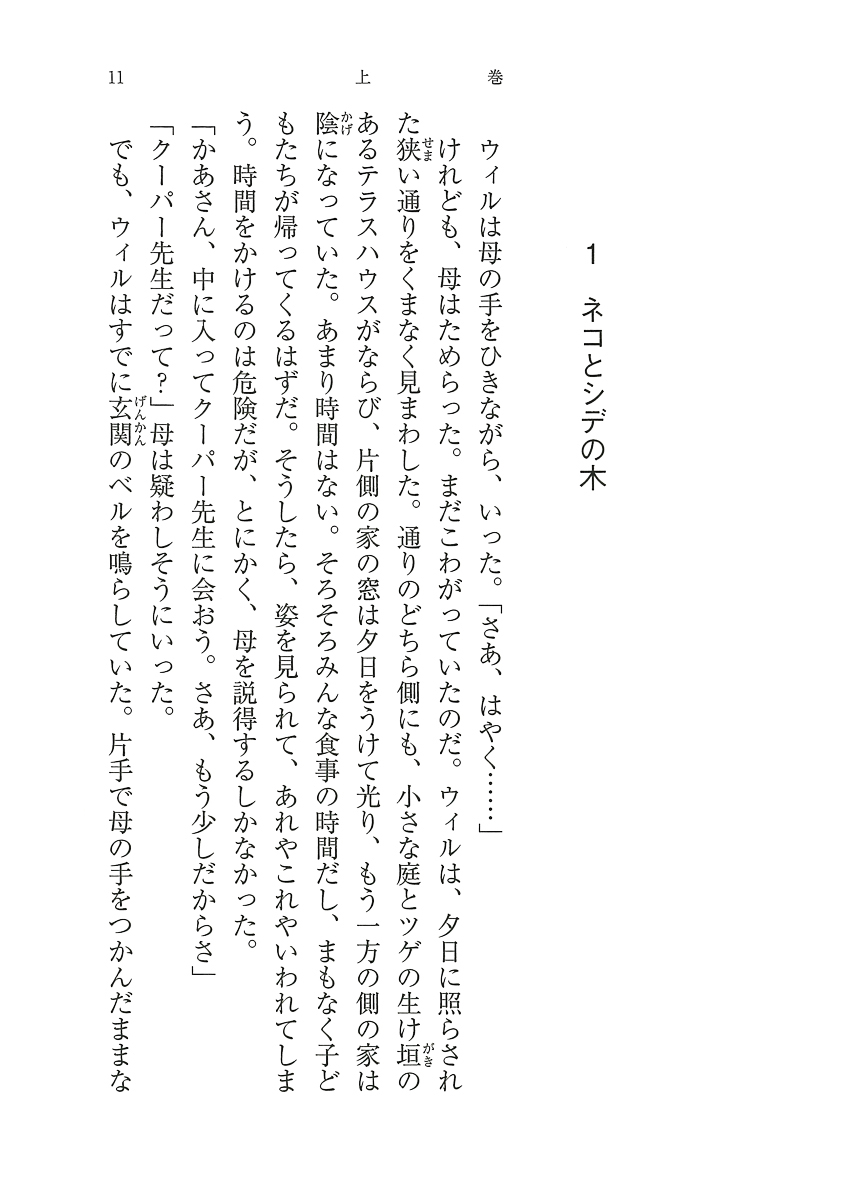 上巻
11
1 ネコとシデの木
ウィルは母の手をひきながら、いった。「さあ、はやく……」
けれども、母はためらった。まだこわがっていたのだ。ウィルは、夕日に照らされ
た狭い通りをくまなく見まわした。通りのどちら側にも、小さな庭とツゲの生け垣の
あるテラスハウスがならび、片側の家の窓は夕日をうけて光り、もう一方の側の家は
陰になっていた。あまり時間はない。そろそろみんな食事の時間だし、まもなく子ど
もたちが帰ってくるはずだ。そうしたら、姿を見られて、あれやこれやいわれてしま
う。時間をかけるのは危険だが、とにかく、母を説得するしかなかった。
「かあさん、中に入ってクーパー先生に会おう。さあ、もう少しだからさ」
「クーパー先生だって？」母は疑わしそうにいった。
でも、ウィルはすでに玄関のベルを鳴らしていた。片手で母の手をつかんだままな